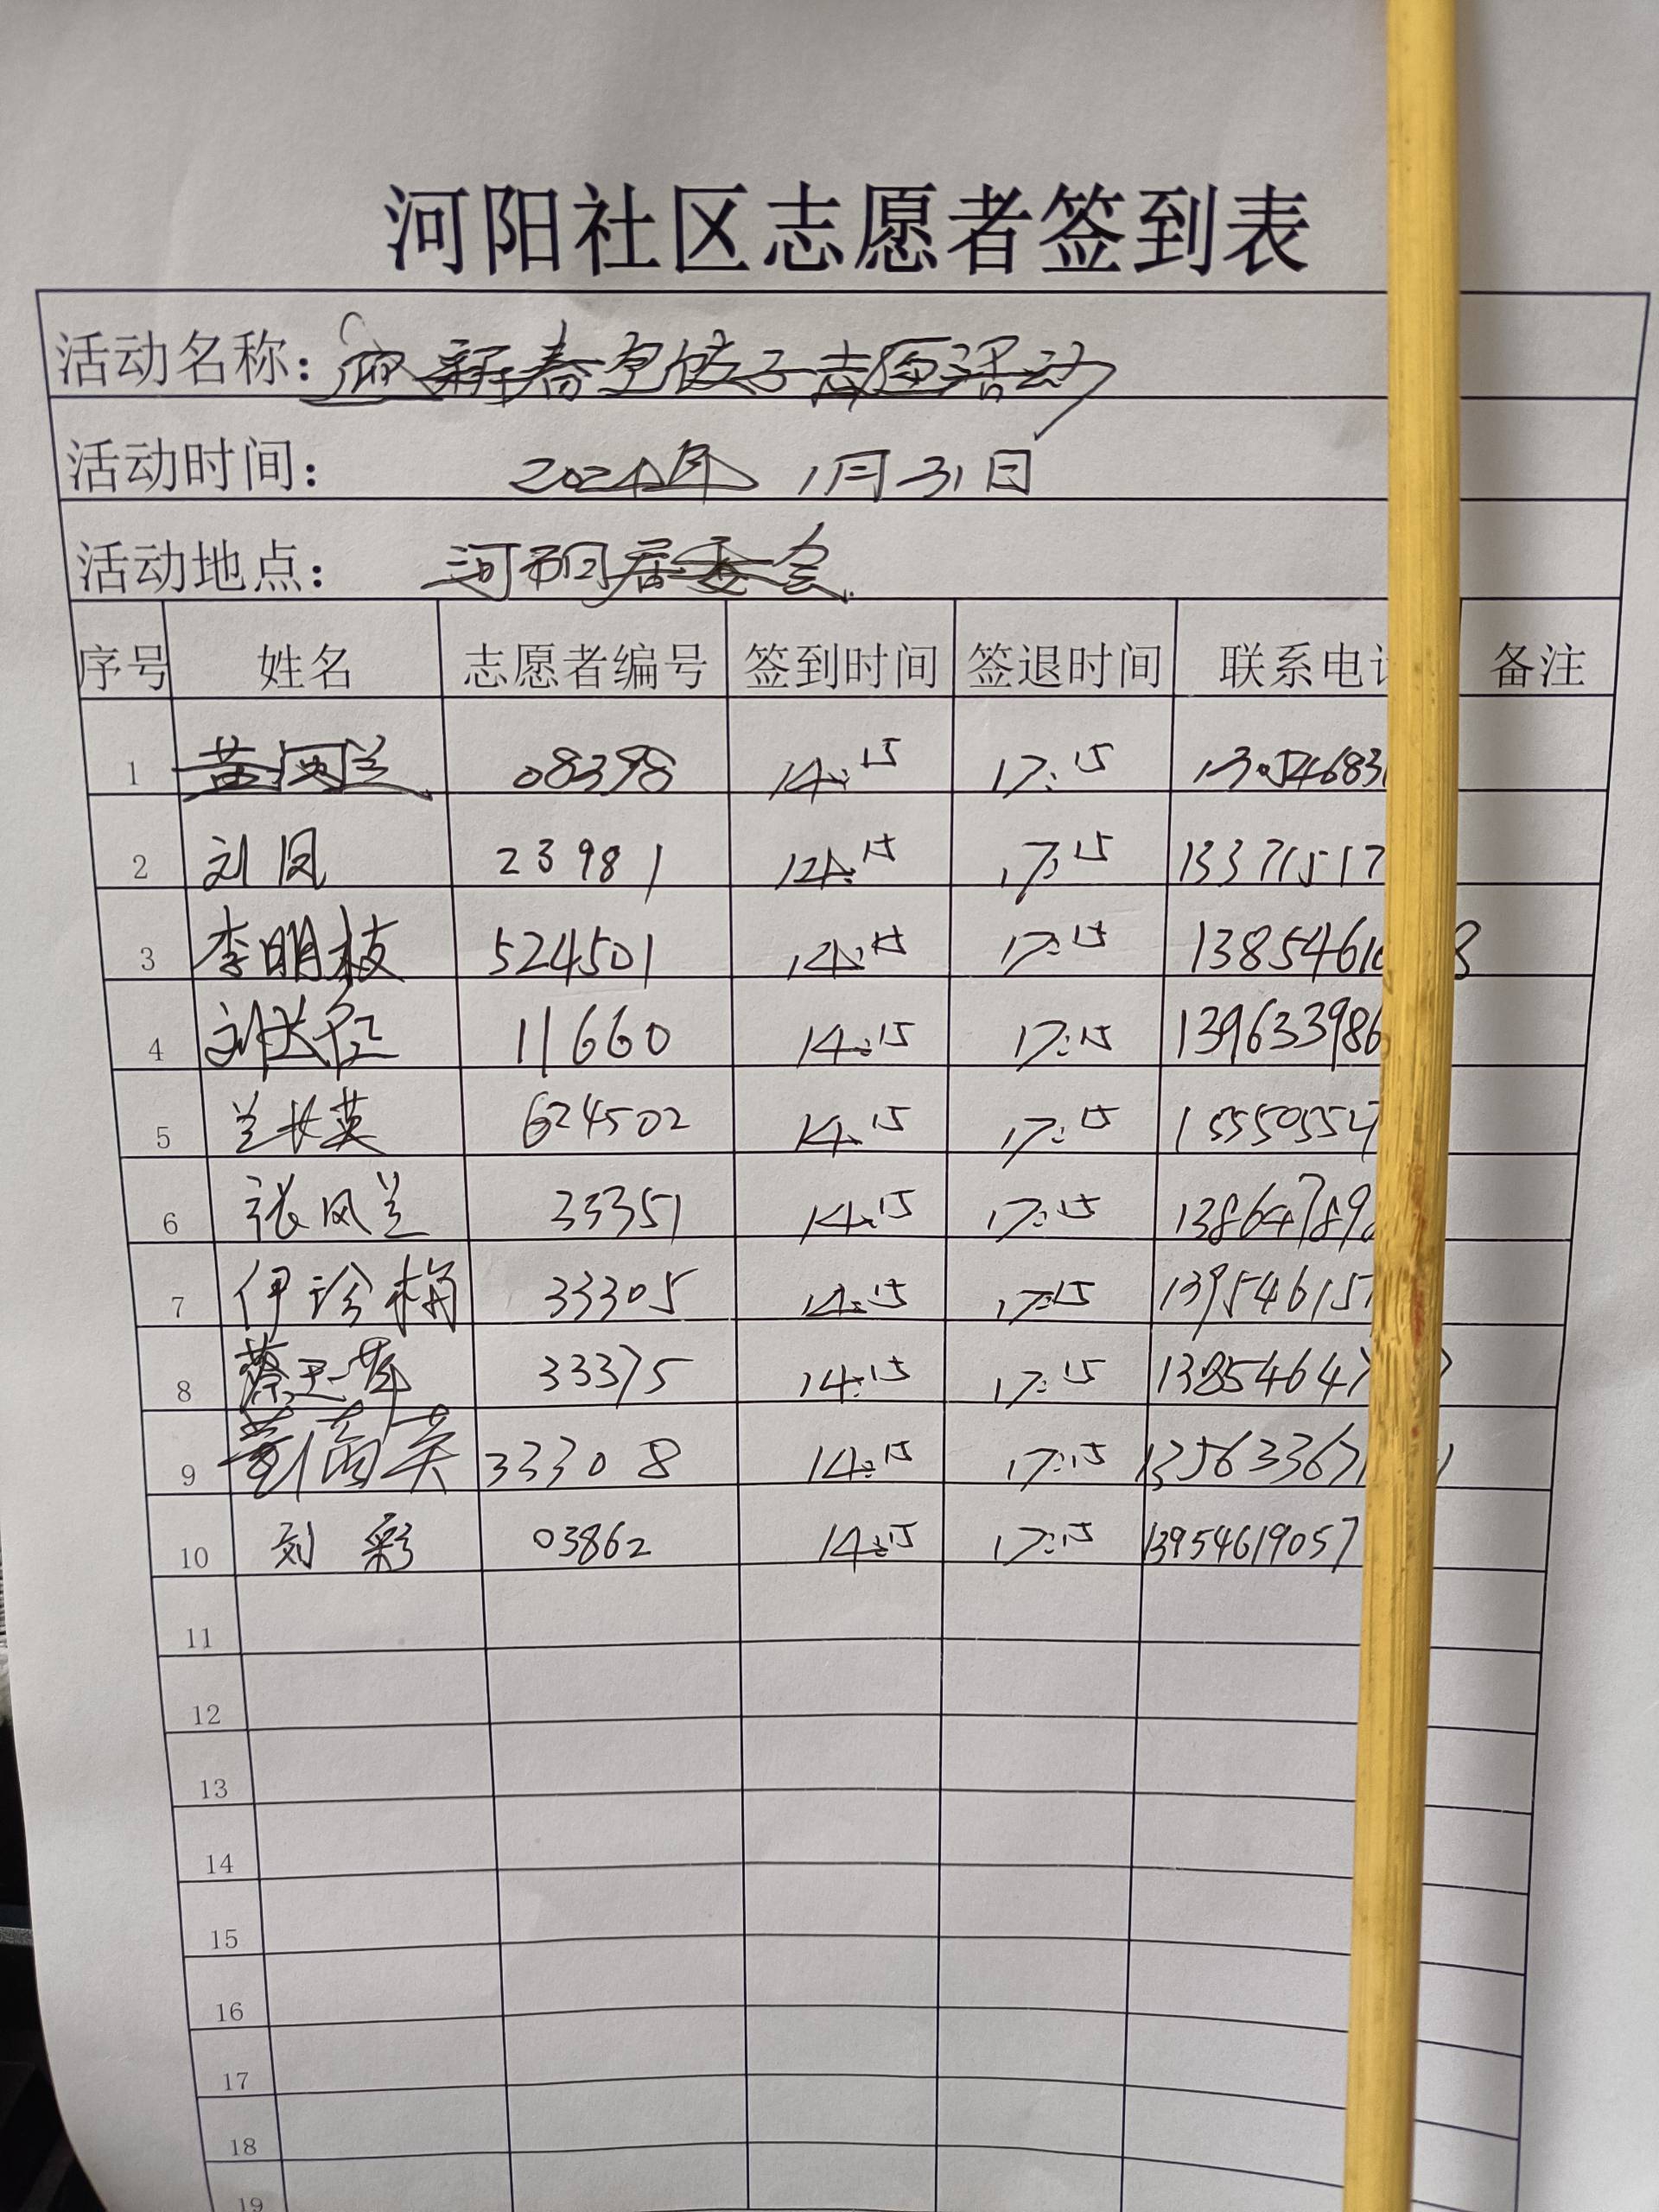 河阳社区志愿者签到表
活动名称：迎新春包饺子志愿活动
活动时间： 2024年 1月31日
活动地点： 河阳居委会
序号 姓名 志愿者编号 签到时间 签退时间 联系电 备注
1 08398 14:15 17:15
2 刘凤 23981 14:15 17:15 13371517
3 李明枝 524501 14:15 17:15 13854610 8
4 11660 14:15 17:15 139633986
5 兰长英 624502 14:15 17:15
6 张凤兰 33351 14:15 17:15 138647898
7 伊珍梅 33305 14:15 17:15 139546157
8 33375 14:15 17:15 13854647
9 33308 14:15 17:15 135633671
10 刘彩 03862 14:15 17:15 13954619057
11
12
13
14
15
16
17
18
19